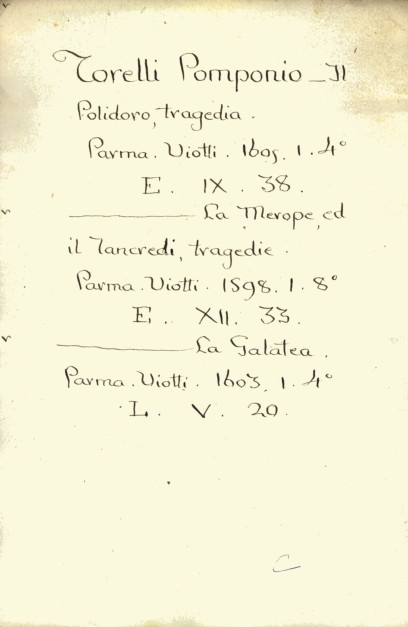 Torelli Pomponio — Il
Polidoro, tragedia .
Parma . Viotti . 1605 . 1 . 4°
E . IX . 38 .
——— La Merope, ed
il Tancredi, tragedie .
Parma . Viotti . 1598 . 1 . 8°
E . XII . 33 .
——— La Galatea .
Parma . Viotti . 1603 . 1 . 4°
L . V . 20 .
C